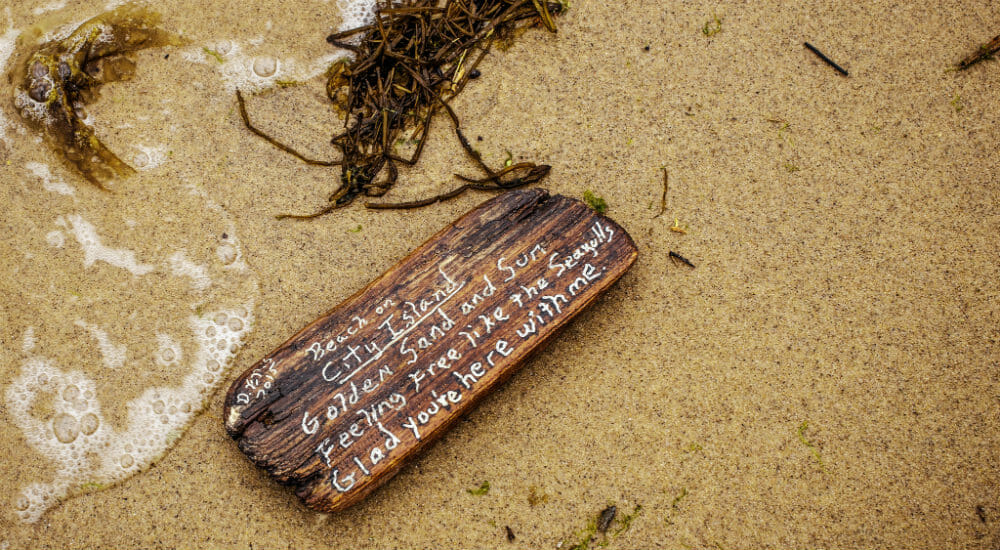 Beach on
City Island
Golden Sand and Sun
Feeling Free like the Seagulls
Glad you're here with me.
2015